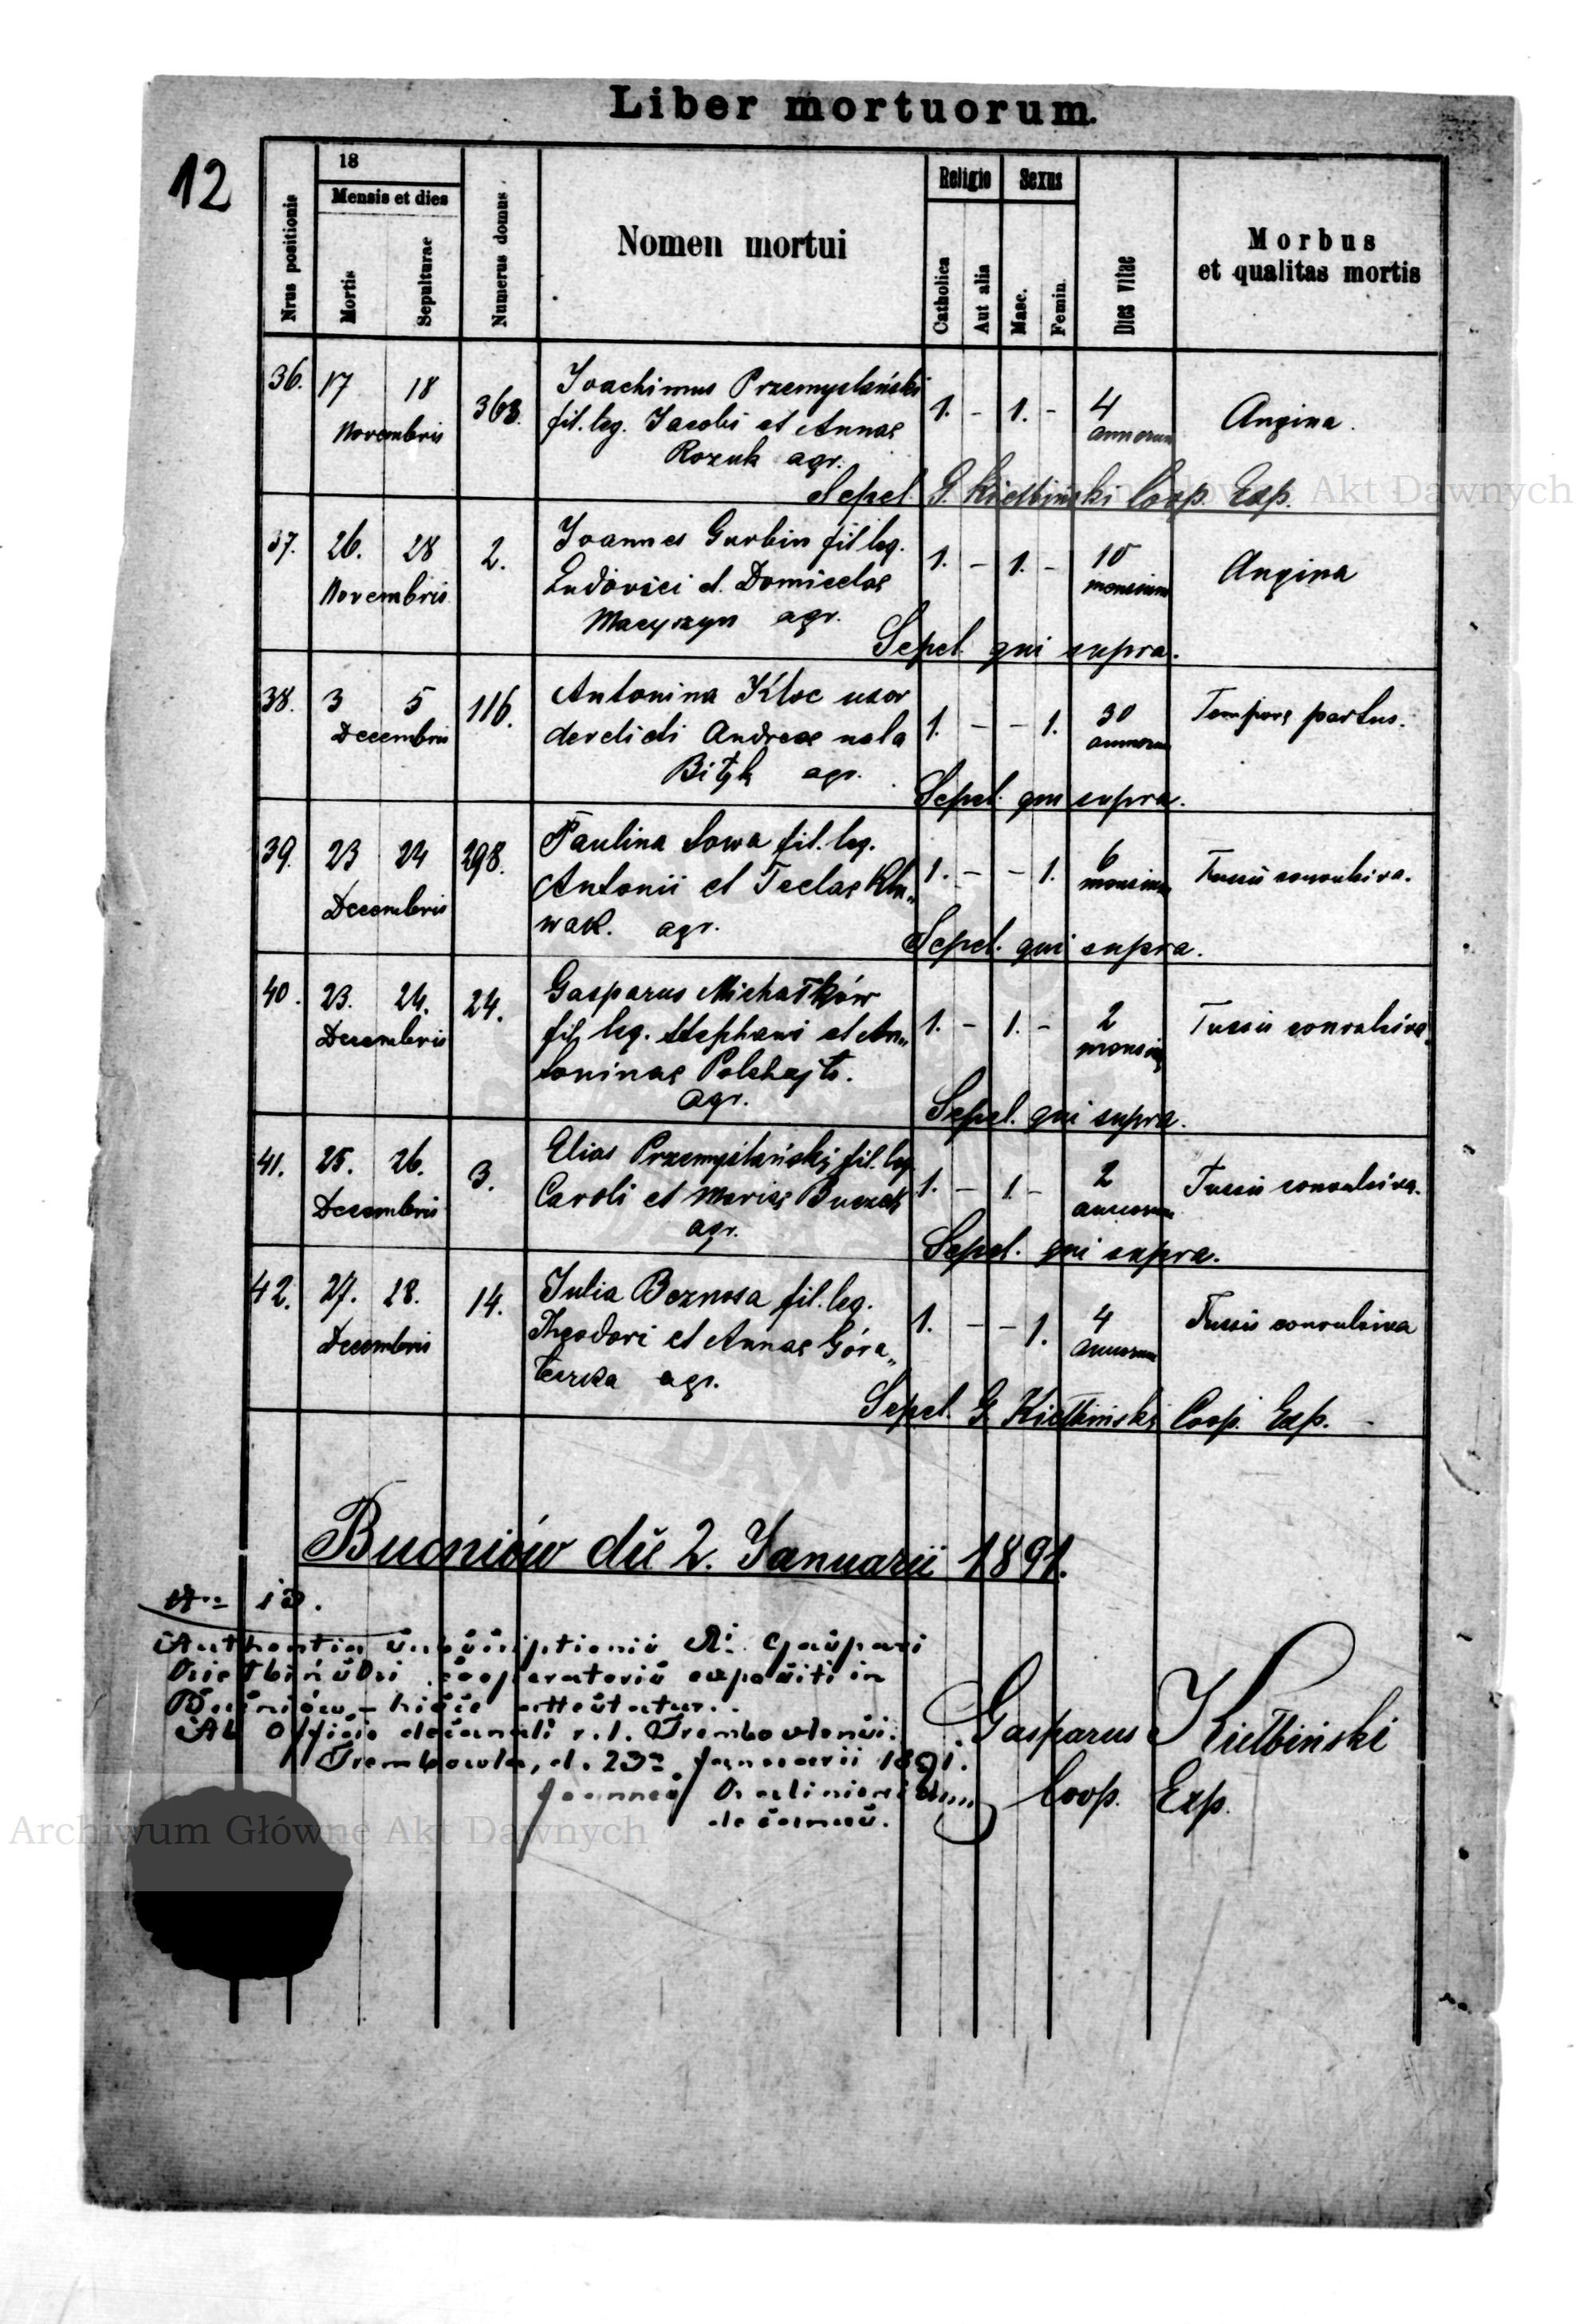 Liber mortuorum.
12
Nrus positionis
18
Mensis et dies
Mortis
Sepulturae
Numerus domus
Nomen mortui
Religio
Catholica
Aut alia
Sexus
Masc.
Femin.
Dies vitae
Morbus
et qualitas mortis
36. 17 18 363. Joachimus Przemyslański 1. - 1. - 4 Angina.
Novembris fil. leg. Jacobi et Annae annorum
Rozuk agr.
Sepel. G. Kiełbiński Coop. Exp.
37. 26. 28 2. Joannes Gurbin fil leg. 1. - 1. - 10 Angina
Novembris Ludovici et Domicelae mensium
Macyszyn agr.
Sepel. qui supra.
38. 3 5 116. Antonina Kloc uxor 1. - - 1. 30 Tempore partus.
Decembris derelicti Andreae nata annorum
Bityk agr.
Sepel. qui supra.
39. 23 24 298. Paulina Sowa fil. leg. 1. - - 1. 6 Tussis convulsiva.
Decembris Antonii et Teclae Klu„ mensium
wak. agr.
Sepel. qui supra.
40. 23. 24. 24. Gasparus Michałków 1. - 1. - 2 Tussis convulsiva.
Decembris fil. leg. Stephani et An„
toninae agr.
Sepel. qui supra.
41. 25. 26. 3. Elias Przemyślański fil. leg. 1. - 1. - 2 Tussis convulsiva.
Decembris Caroli et Mariae annorum
agr.
Sepel. qui supra.
42. 27. 28. 14. Julia Beznosa fil. leg. 1. - - 1. 4 Tussis convulsiva
Decembris Theodori et Annae Góra„ annorum
agr.
Sepel. G. Kiełbiński Coop. Exp.
Bucniów die 2. Januarii 1891.
Authentia subscriptionis Rdi. Gaspari
Kiełbiński cooperatoris expositi in
Bucniów - hisce attestatur.
Ab Officio decanali r. l. Trembowlensi.
Trembowla, d. 23 Januarii 1891.
Joannes
decanus.
Gasparus Kiełbiński
Coop. Exp.
Archiwum Główne Akt Dawnych